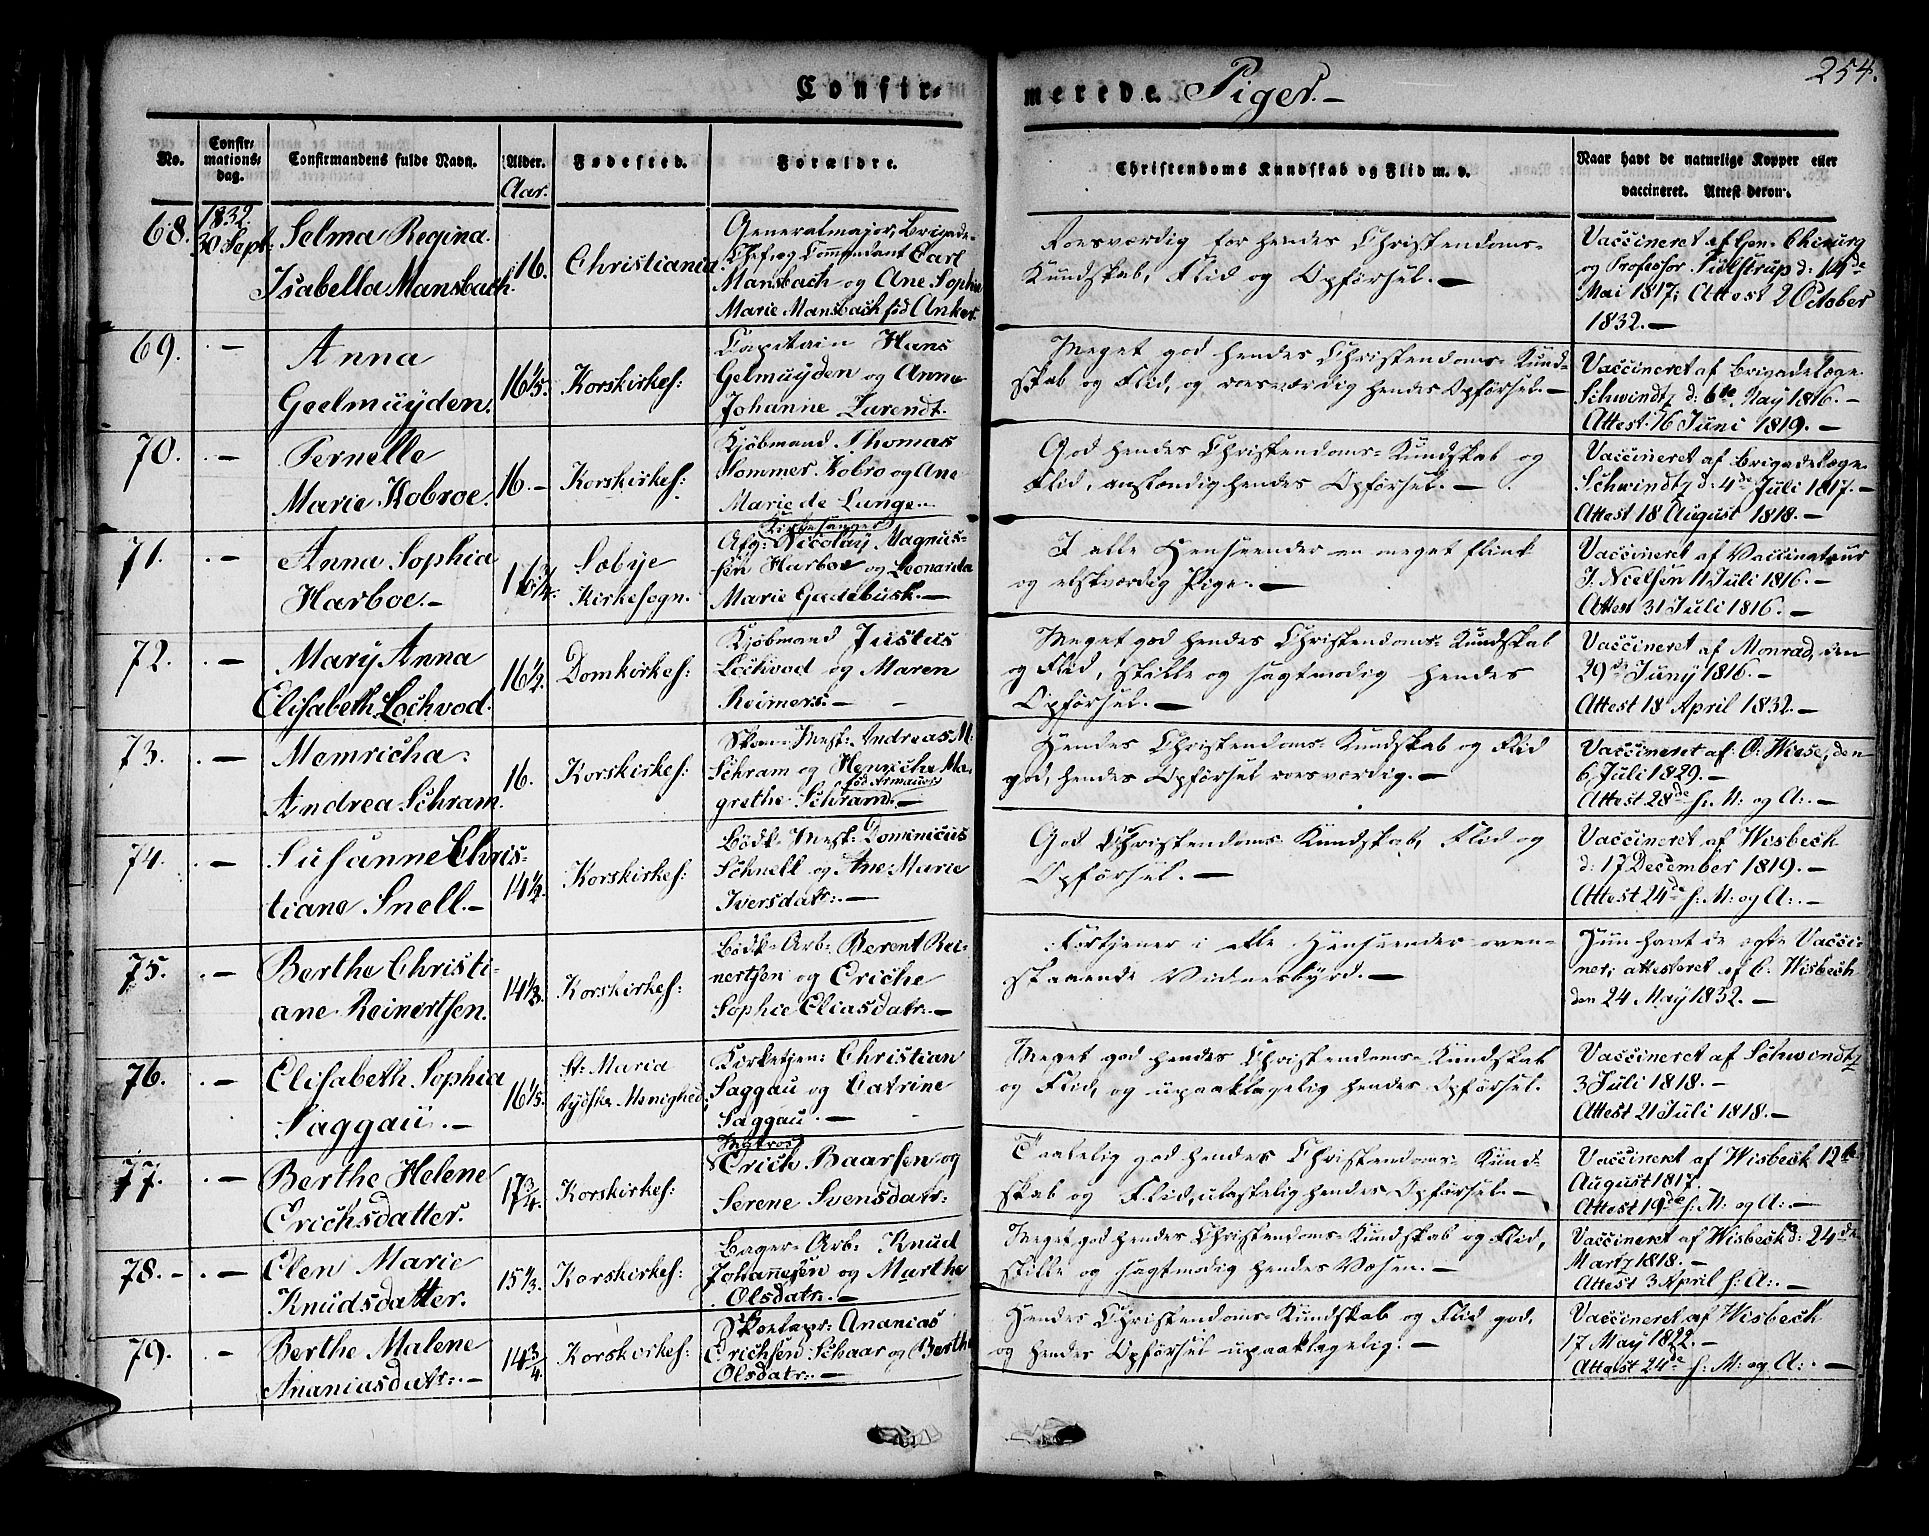 254.
Confir- merede Piger.-
No.
Confirmations-dag.
Confirmandens fulde Navn.
Alder.
Aar.
Fødested.
Forældre.
Christendoms Kundskab og Flid m. v.
Naar havt de naturlige Kopper eller
vaccineret. Attest derom.
68.
1832.
30 Sept:
Selma Regina
Isabella Mansbach.
16.
Christiania
Generalmajor, Brigade-
Chef og Commendant Carl
Mansbach og Ane Sophia
Marie Mansbach fød Anker.
Roesværdig for hendes Christendoms-
Kundskab, Flid og Opførsel. —
Vaccineret af Gen: Chirurg
og Professor d: 14de
Mai 1817; Attest 2 October
1832. —
69.
. —
Anna
Geelmuÿden.
16 1/5.
Korskirkes:
Capitain Hans
Gelmuÿden og Anna
Johanne Larendt.
Meget god hendes Christendoms- Kund-
skab og Flid, og roesværdig hendes Opførsel. —
Vaccineret af Brigadelæge
Schwindtz d: 6te Maÿ 1816. —
Attest 16 Juni 1819. —
70.
. —
Pernelle
Marie Kobroe.
16. —
Korskirkes:
Kjøbmand Thomas
Sommer Kobro og Ane
Marie de Lange.
God hendes Christendoms- Kundskab og
Flid, anstændig hendes Opførsel. —
Vaccineret af Brigadelæge
Schwindtz d: 4de Juli 1817. —
Attest 18 August 1818. —
71.
. —
Anna Sophia
Harboe. —
16 3/4.
Sæbÿe
Kirkesogn.
Kirkesanger
Afg: Nicolaÿ Magnus-
sen Harboe og Leonarda
Marie Gadebusk. —
I alle Henseender en meget flink
og elskværdig Pige. —
Vaccineret af Vaccinateur
J. Nielsen 11 Juli 1816. —
Attest 31 Juli 1816. —
72.
. —
Marÿ Anna
Elisabeth Lochvod.
16 1/2.
Domkirkes:
Kjøbmand Justus
Lochvod og Maren
Reimers. —
Meget god hendes Christendoms- Kundskab
og Flid, stille og sagtmodig hendes
Opførsel. —
Vaccineret af Monrad, den
29de Junÿ 1816. —
Attest 18 April 1832. —
73.
. —
Memricha
Andrea Schram.
16.
Korskirkes:
Skom: Mest: Andreas M:
Schram og Henricha Ma-
fød Armauer
grethe Schram. —
Hendes Christendoms- Kundskab og Flid
god, hendes Opførsel roesværdig. —
Vaccineret af O: Wiese, den
6 Juli 1829. —
Attest 28de s: M: og A: —
74.
. —
Susanne Chris-
tiane Snell. —
14 1/2.
Korskirkes:
Bødk: Mest: Dominicus
Schnell og Ane Marie
Iversdatr. —
God Christendoms- Kundskab, Flid og
Opførsel. —
Vaccineret af Wisbech
d: 17 December 1819. —
Attest 24de s: M: og A: —
75.
. —
Berthe Christi-
ane Reinertsen.
14 1/3.
Korskirkes:
Bødk: Arb: Berent Rei-
nertsen og Eriche
Sophie Eliasdatr: —
Fortjener i alle Henseender oven-
staaende Vidnesbyrd. —
Hun havt de ægte Vacci-
ner; attesteret af C. Wisbech
den 24 Maÿ 1832. —
76.
. —
Elisabeth Sophia
Saggau. —
16 1/5.
St. Maria
tÿdske Menighed:
Kirketjen: Christian
Saggau og Catrine
Saggau. —
Meget god hendes Christendoms- Kundskab
og Flid, og upaaklagelig hendes Opførsel.
Vaccineret af Schwindtz
3 Juli 1818. —
Attest 21 Juli 1818. —
77.
. —
Berthe Helene
Erichsdatter.
17 3/4.
Korskirkes:
Matros
Erich Baarsen og
Serene Svensdatr:
Taalelig god hendes Christendoms- Kund-
skab og Flid, ulastelig hendes Opførsel. —
Vaccineret af Wisbeck 12te
August 1817.
Attest 19de s: M: og A: —
78. -
. —
Elen Marie
Knudsdatter.
15 1/3.
Korskirkes:
Bager- Arb: Knud
Johannesen og Marthe
Olsdatr. —
Meget god hendes Christendoms- Kundskab og Flid,
stille og sagtmodig hendes Væsen. —
Vaccineret af Wisbeck d: 24de
Martz 1818. —
Attest 3 April s: A: —
79.
. —
Berthe Malene
Ananiasdatr: —
14 3/4
Korskirkes:
Skoelapr: Ananias
Erichsen Schaar og Berthe
Olsdatr. —
Hendes Christendoms- Kundskab og Flid god,
og hendes Opførsel upaaklagelig. —
Vaccineret af Wisbech
17 Maÿ 1822. —
Attest 24de s: M: og A: —